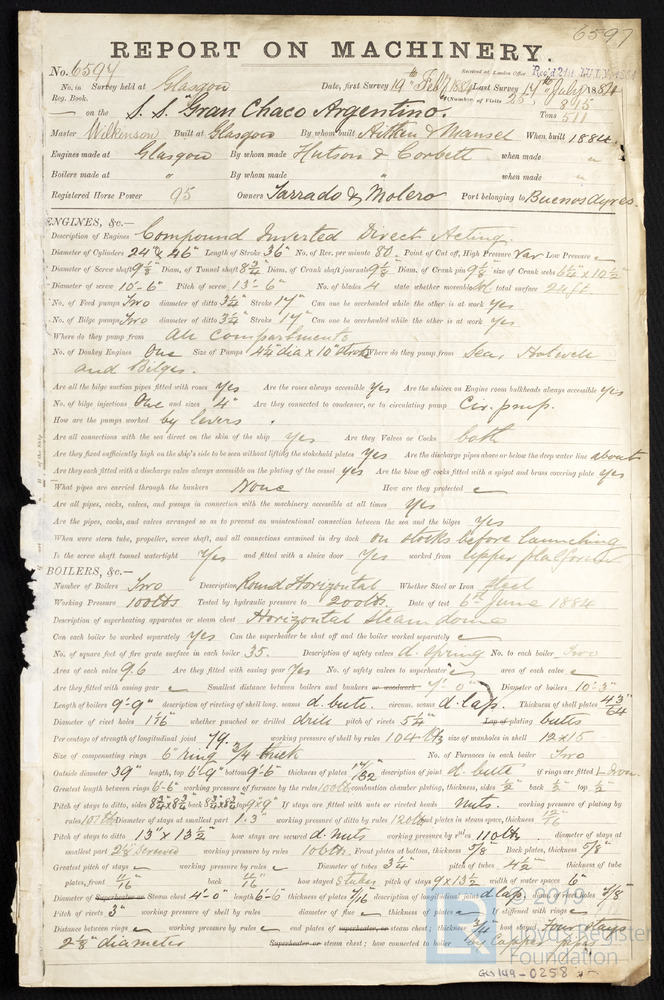 6597
REPORT ON MACHINERY.
No. 6597
Received at London Office
No. in Survey held at Glasgow Date, first Survey 19th Feby 1884 Last Survey 17th July 1884
Reg. Book. (Number of Visits 25) 895
on the S.S. "Gran Chaco Argentino." Tons 511
Master Wilkinson Built at Glasgow By whom built Aitken & Mansel When built 1884.
Engines made at Glasgow By whom made Hutson & Corbett when made "
Boilers made at " By whom made " when made "
Registered Horse Power 95 Owners Tarrado & Molero Port belonging to Buenos Ayres.
ENGINES, &c.—
Description of Engines Compound Inverted Direct Acting.
Diameter of Cylinders 24" & 46" Length of Stroke 36" No. of Rev. per minute 80 Point of Cut off, High Pressure Var Low Pressure
Diameter of Screw shaft 9 1/8 Diam. of Tunnel shaft 8 3/4 Diam. of Crank shaft journals 9 1/8 Diam. of Crank pin 9 1/8 size of Crank webs 6 1/2 x 10 1/2"
Diameter of screw 10'-6" Pitch of screw 13'-6" No. of blades 4 state whether moveable No total surface 24 ft
No. of Feed pumps Two diameter of ditto 3 1/4" Stroke 17" Can one be overhauled while the other is at work Yes
No. of Bilge pumps Two diameter of ditto 3 1/4" Stroke 17" Can one be overhauled while the other is at work Yes
Where do they pump from All Compartments
No. of Donkey Engines One Size of Pumps 4 1/4" dia x 10" stroke Where do they pump from Sea, Hotwell
and Bilges.
Are all the bilge suction pipes fitted with roses Yes Are the roses always accessible Yes Are the sluices on Engine room bulkheads always accessible Yes
No. of bilge injections One and sizes 4" Are they connected to condenser, or to circulating pump Cir. pump.
How are the pumps worked by levers
Are all connections with the sea direct on the skin of the ship Yes Are they Valves or Cocks both
Are they fixed sufficiently high on the ship's side to be seen without lifting the stokehold plates Yes Are the discharge pipes above or below the deep water line about
Are they each fitted with a discharge valve always accessible on the plating of the vessel Yes Are the blow off cocks fitted with a spigot and brass covering plate Yes
What pipes are carried through the bunkers None How are they protected
Are all pipes, cocks, valves, and pumps in connection with the machinery accessible at all times Yes
Are the pipes, cocks, and valves arranged so as to prevent an unintentional connection between the sea and the bilges Yes
When were stern tube, propeller, screw shaft, and all connections examined in dry dock on stocks before launching
Is the screw shaft tunnel watertight Yes and fitted with a sluice door Yes worked from Upper platform
BOILERS, &c.—
Number of Boilers Two Description Round Horizontal Whether Steel or Iron Steel
Working Pressure 100 lbs Tested by hydraulic pressure to 200 lbs. Date of test 6th June 1884
Description of superheating apparatus or steam chest Horizontal Steam dome
Can each boiler be worked separately Yes Can the superheater be shut off and the boiler worked separately
No. of square feet of fire grate surface in each boiler 35. Description of safety valves d. Spring No. to each boiler Two
Area of each valve 9.6 Are they fitted with easing gear Yes No. of safety valves to superheater area of each valve
Are they fitted with easing gear Smallest distance between boilers and bunkers or woodwork 1'-0" Diameter of boilers 10'-3"
Length of boilers 9'-9" description of riveting of shell long. seams d. butt. circum. seams d. lap. Thickness of shell plates 43/64
Diameter of rivet holes 1 1/16 whether punched or drilled drill pitch of rivets 5 1/4" Lap of plating butts
Per centage of strength of longitudinal joint 79. working pressure of shell by rules 104 lbs size of manholes in shell 12 x 15
Size of compensating rings 6" ring 3/4 thick No. of Furnaces in each boiler Two
Outside diameter 39" length, top 6'-9" bottom 9'-6" thickness of plates 17/32 description of joint d. butt if rings are fitted
Greatest length between rings 6'-6" working pressure of furnace by the rules 100 lb combustion chamber plating, thickness, sides 1/2" back 1/2" top 1/2
Pitch of stays to ditto, sides 8 3/4 x 8 3/4 back 8 3/4 x 8 3/4 top 9 x 9" If stays are fitted with nuts or riveted heads Nuts. working pressure of plating by
rules 107 lb Diameter of stays at smallest part 1.3" working pressure of ditto by rules 120 lb end plates in steam space, thickness 13/16
Pitch of stays to ditto 13" x 13 1/2" how stays are secured d. nuts working pressure by rules 110 lb. diameter of stays at
smallest part 2 1/8 Screwed working pressure by rules 106 lb. Front plates at bottom, thickness 5/8" Back plates, thickness 5/8"
Greatest pitch of stays working pressure by rules Diameter of tubes 3 1/4" pitch of tubes 4 1/2" thickness of tube
plates, front 11/16" back 11/16" how stayed S tubes pitch of stays 9 x 13 1/2 width of water spaces 6"
Diameter of Superheater or Steam chest 4'-0" length 6'-6" thickness of plates 7/16 description of longitudinal joint d lap. diam. of rivet holes 7/8"
Pitch of rivets 3" working pressure of shell by rules diameter of flue thickness of plates If stiffened with rings
Distance between rings working pressure by rules end plates of superheater, or steam chest; thickness 3/4" how stayed four stays
2 1/8" diameter Superheater or steam chest; how connected to boiler by Copper pipes
© 2019
Lloyd's Register
Foundation
GLS149-0258